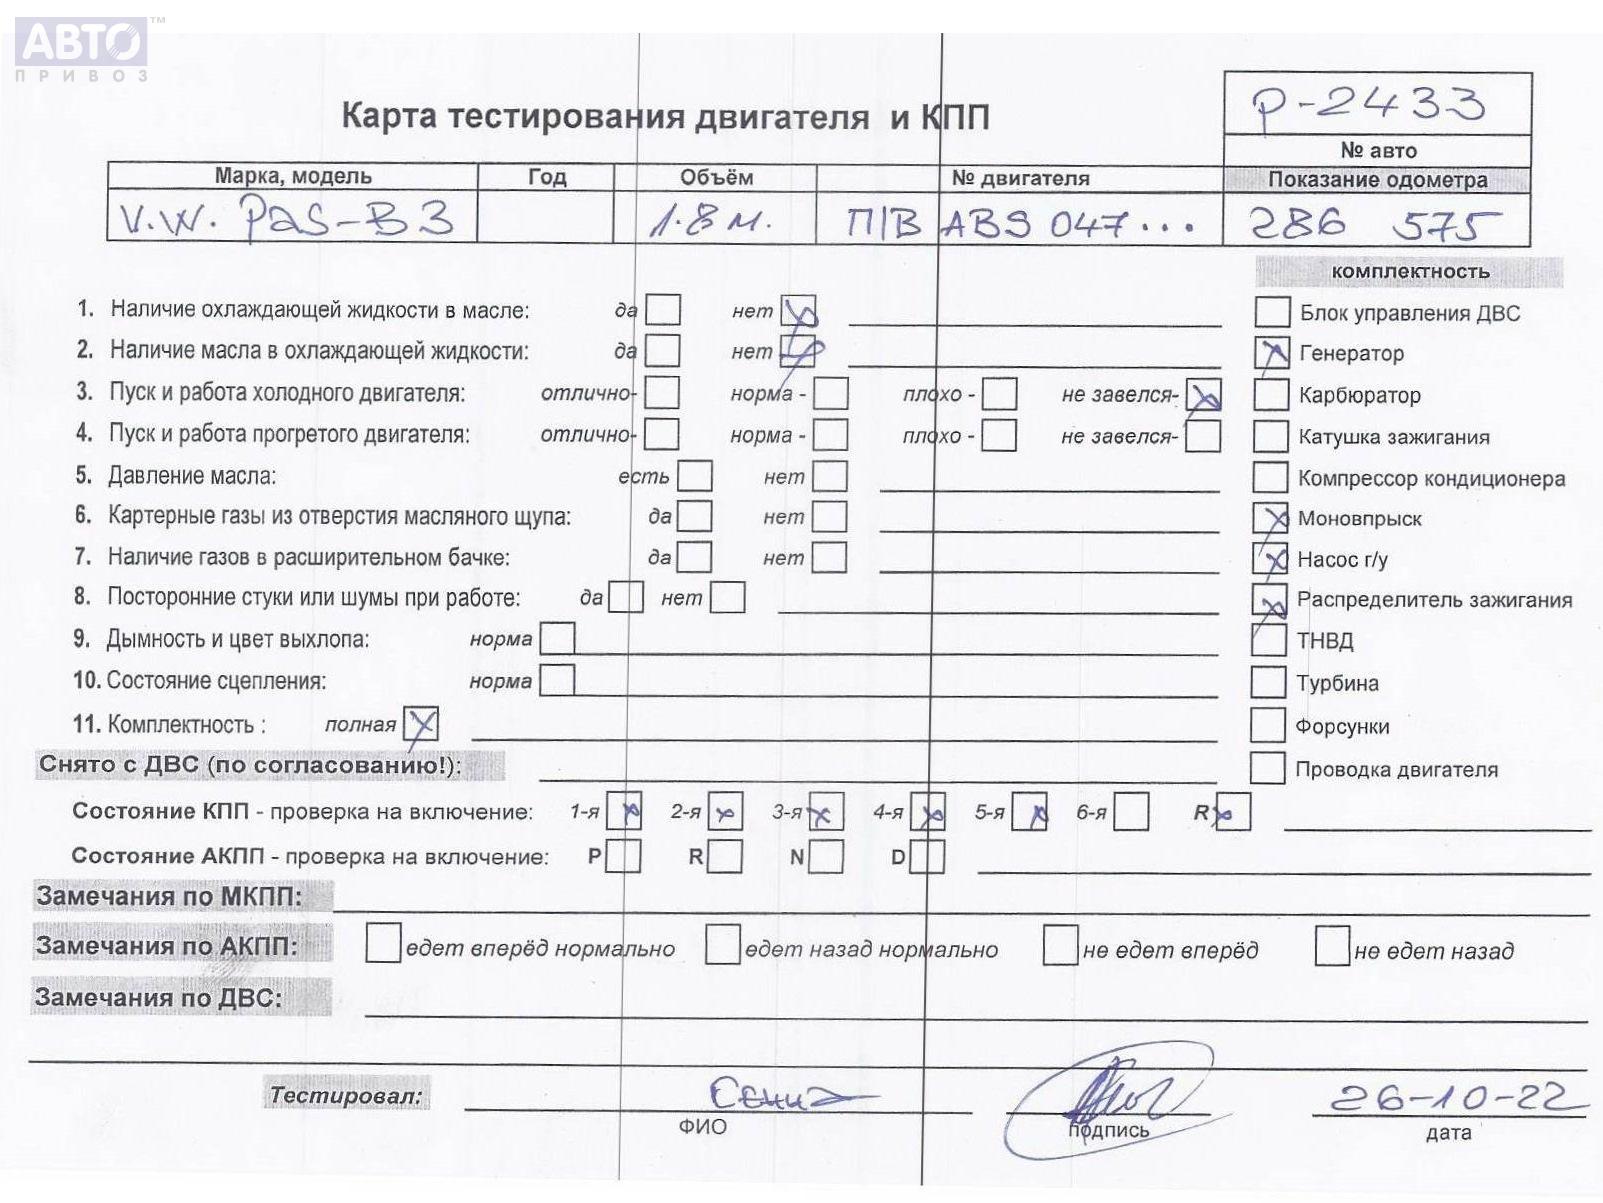 АВТО™
ПРИВОЗ
Р-2433
Карта тестирования двигателя и КПП
№ авто
Марка, модель Год Объём № двигателя Показание одометра
V.W. Pas-B3 1.8 м. П/В ABS 047... 286 575
комплектность
1. Наличие охлаждающей жидкости в масле: да нет Блок управления ДВС
2. Наличие масла в охлаждающей жидкости: да нет Генератор
3. Пуск и работа холодного двигателя: отлично- норма - плохо - не завелся- Карбюратор
4. Пуск и работа прогретого двигателя: отлично- норма - плохо - не завелся- Катушка зажигания
5. Давление масла: есть нет Компрессор кондиционера
6. Картерные газы из отверстия масляного щупа: да нет Моновпрыск
7. Наличие газов в расширительном бачке: да нет Насос г/у
8. Посторонние стуки или шумы при работе: да нет Распределитель зажигания
9. Дымность и цвет выхлопа: норма ТНВД
10. Состояние сцепления: норма Турбина
11. Комплектность : полная Форсунки
Снято с ДВС (по согласованию!): Проводка двигателя
Состояние КПП - проверка на включение: 1-я 2-я 3-я 4-я 5-я 6-я R
Состояние АКПП - проверка на включение: P R N D
Замечания по МКПП:
Замечания по АКПП: едет вперёд нормально едет назад нормально не едет вперёд не едет назад
Замечания по ДВС:
Тестировал: 26-10-22
ФИО подпись дата